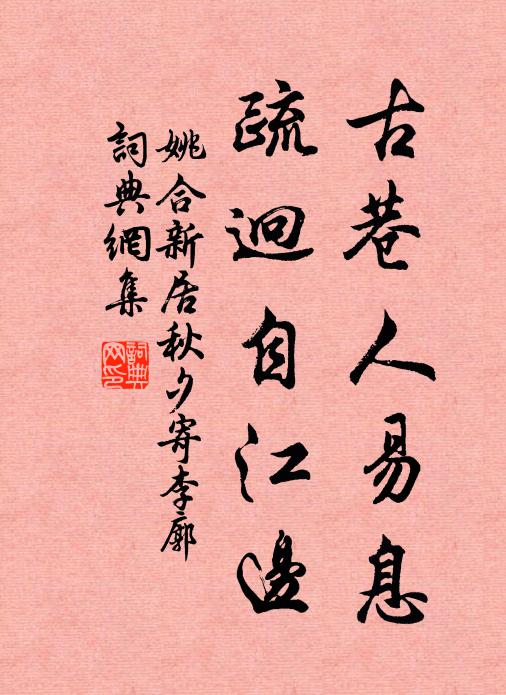 古巷人易息
疏迴自江邊
姚合新居秋夕寄李廓
詞典網集
詞典
网印